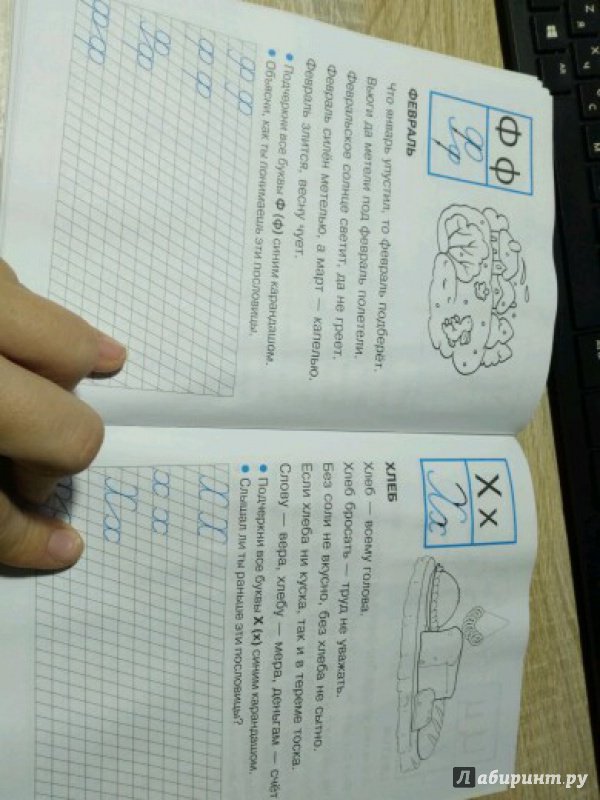 Ф ф
Ф ф
ФЕВРАЛЬ
Что январь упустил, то февраль подберёт.
Вьюги да метели под февраль полетели.
Февральское солнце светит, да не греет.
Февраль силён метелью, а март — капелью.
Февраль злится, весну чует.
• Подчеркни все буквы Ф (ф) синим карандашом.
• Объясни, как ты понимаешь эти пословицы.
Х х
Х х
ХЛЕБ
Хлеб — всему голова.
Хлеб бросать — труд не уважать.
Без соли не вкусно, без хлеба не сытно.
Если хлеба ни куска, так и в тереме тоска.
Слову — вера, хлебу — мера, деньгам — счёт
• Подчеркни все буквы Х (х) синим карандашом.
• Слышал ли ты раньше эти пословицы?
Х Х
х х
Хх
Лабиринт.ру